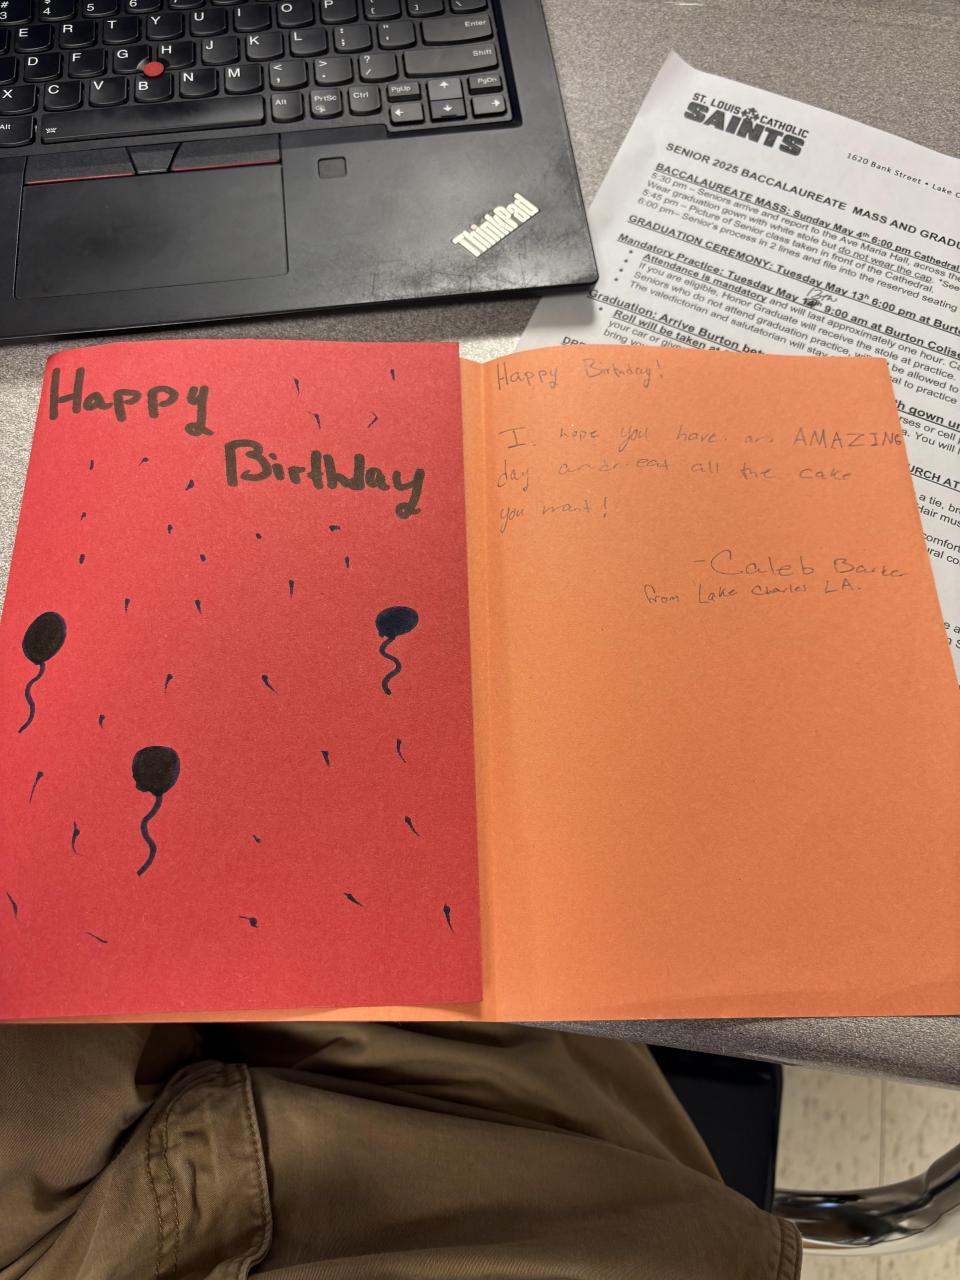 E R T Y U I O P
D F G H J K L
X C V B N M
Enter
Shift
Alt PrtSc Ctrl PgUp PgDn
Alt
ThinkPad
ST. LOUIS CATHOLIC
SAINTS
1620 Bank Street • Lake
SENIOR 2025 BACCALAUREATE MASS AND GRADU
BACCALAUREATE MASS: Sunday May 4th 6:00 pm Cathedral
5:30 pm – Seniors arrive and report to the Ave Maria Hall, across the
Wear graduation gown with white stole but do not wear the cap. *See
5:45 pm – Picture of Senior class taken in front of the Cathedral.
6:00 pm– Senior's process in 2 lines and file into the reserved seating
GRADUATION CEREMONY: Tuesday May 13th 6:00 pm at Burto
Mandatory Practice: Tuesday May 9:00 am at Burton Colise
• Attendance is mandatory and will last approximately one hour.
• If you are eligible, Honor Graduate will receive the stole at practice.
• Seniors who do not attend graduation practice, be allowed to
• The valedictorian and salutatorian will stay to practice
Graduation: Arrive Burton
• Roll will be taken at
your car or
Happy
Birthday
Happy Birthday!
I hope you have an AMAZING
day and eat all the cake
you want!
-Caleb Barker
from Lake Charles LA.